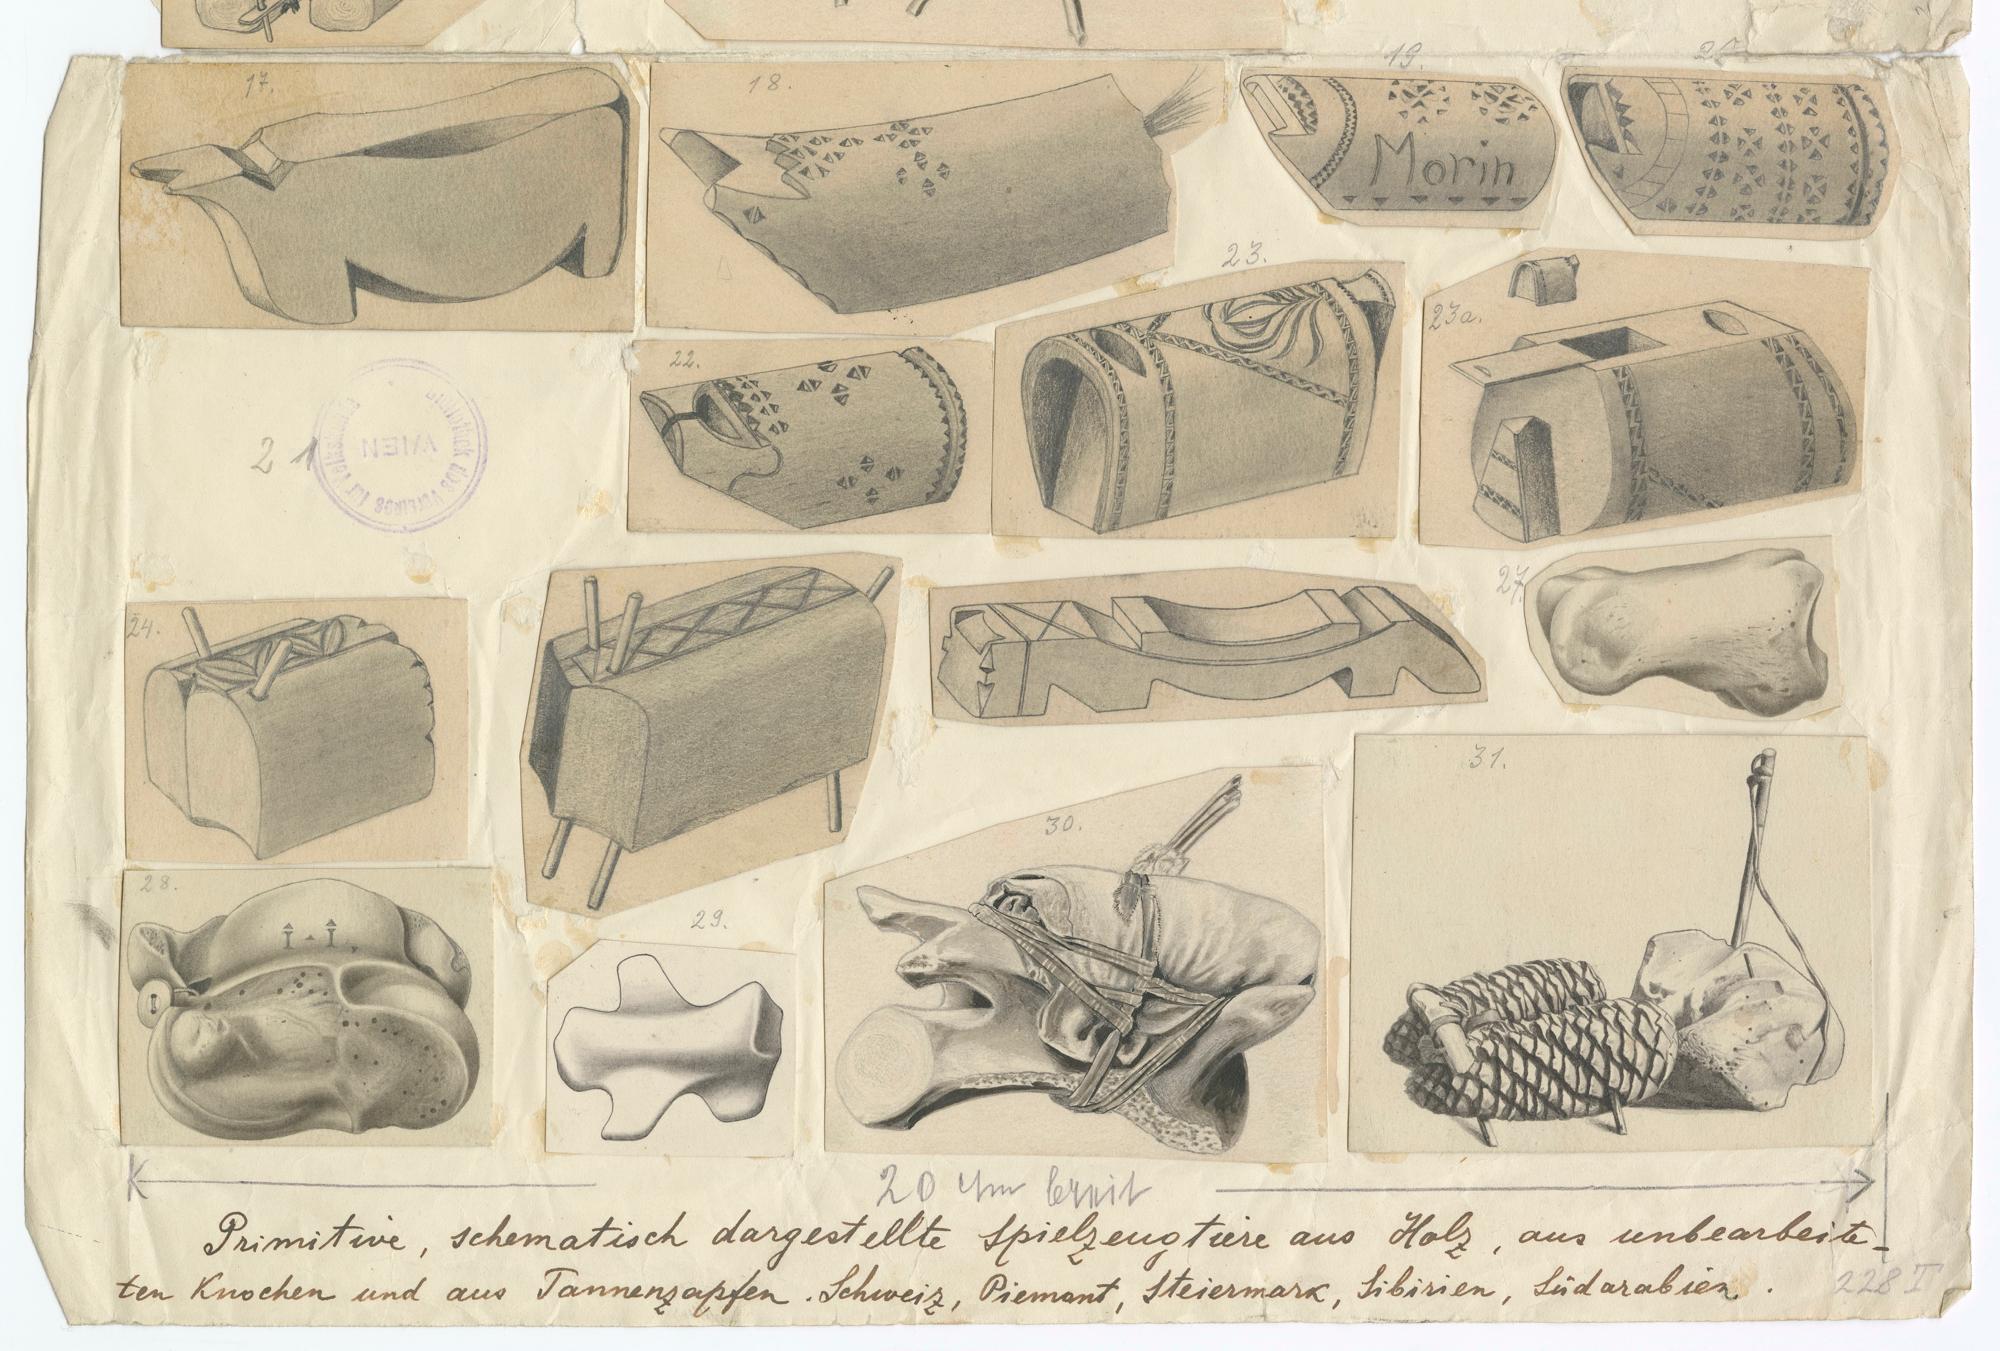 17.
18.
19.
20.
Morin
23.
23a.
22.
21
WIEN
24.
27.
31.
30.
28.
29.
20 cm breit
Primitive, schematisch dargestellte Spielzeugtiere aus Holz, aus unbearbeite-
ten Knochen und aus Tannenzapfen. Schweiz, Piemont, Steiermark, Sibirien, Südarabien.
228 I